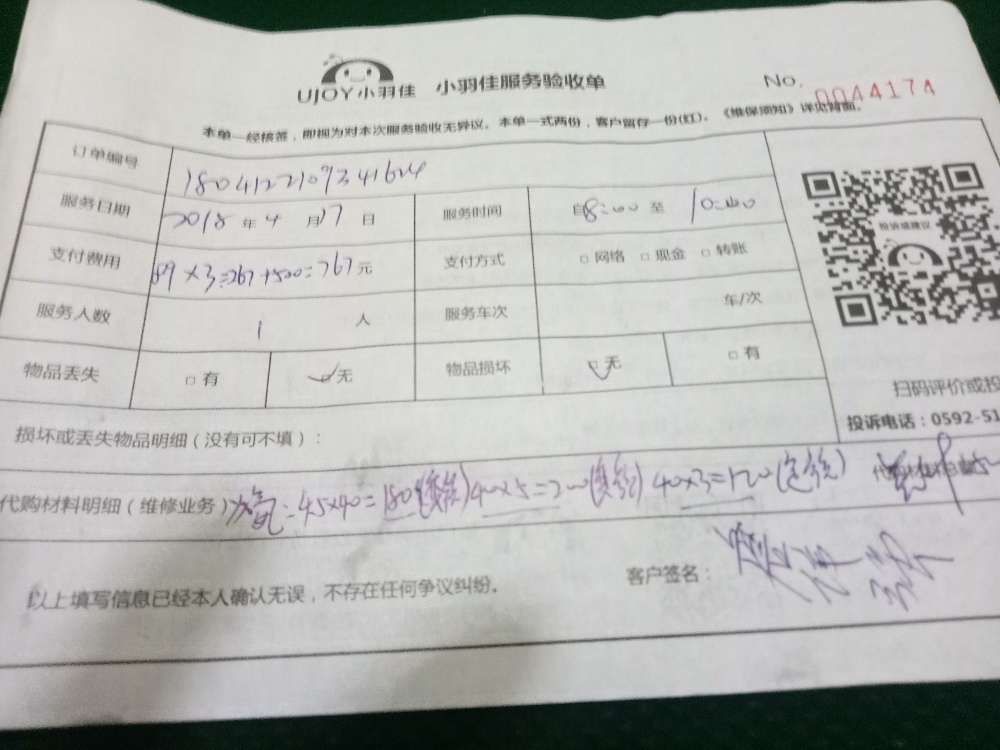 UJOY小羽佳 小羽佳服务验收单 No. 0044174
本单一经核签，即视为对本次服务验收无异议。本单一式两份，客户留存一份(红)。《维保须知》详见背面。
订单编号 1804122109341624
服务日期 2018 年 4 月 17 日 服务时间 自 8:00 至 10:00
支付费用 89×3=267+500=767 元 支付方式 □网络 □现金 □转账
服务人数 1 人 服务车次 车/次
物品丢失 □有 ☑无 物品损坏 ☑无 □有
投诉或建议
扫码评价或投
投诉电话：0592-51
损坏或丢失物品明细（没有可不填）：
代购材料明细（维修业务） 加氟：45×40=180 40×5=200 40×3=120
以上填写信息已经本人确认无误，不存在任何争议纠纷。 客户签名：